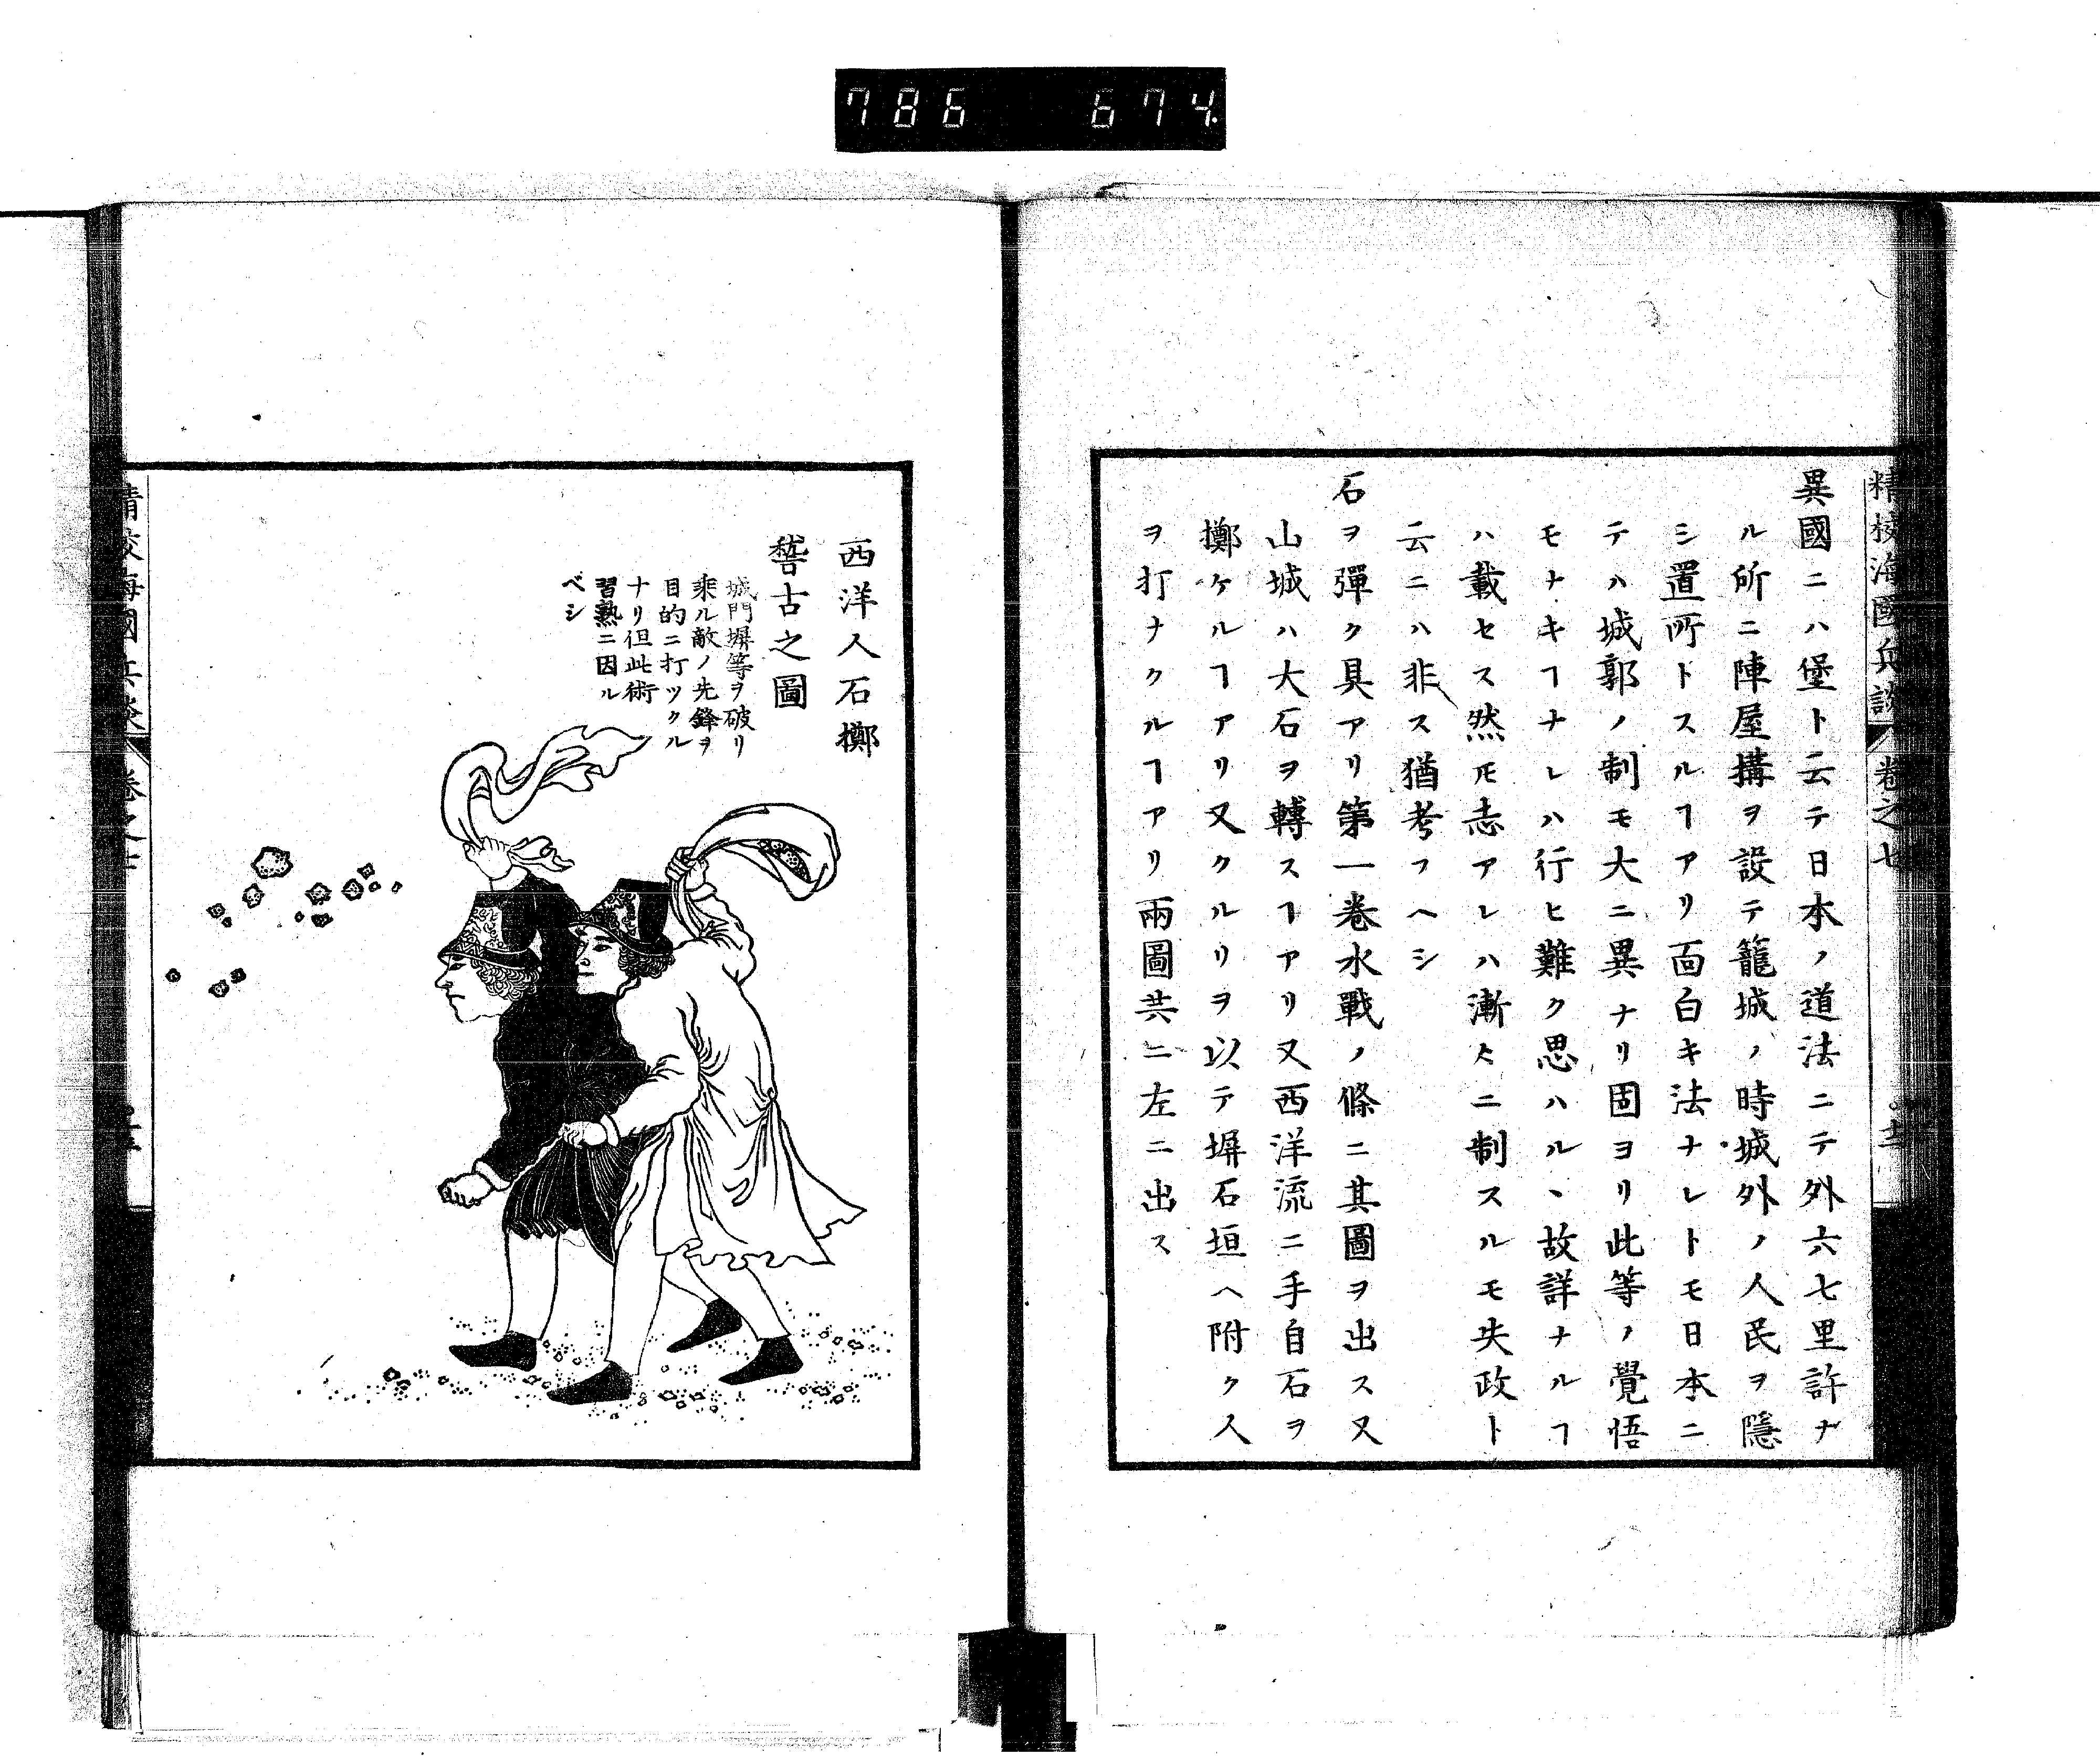 786 674
精校海國兵談 卷之七
異國ニハ堡ト云テ日本ノ道法ニテ外六七里許ナ
ル所ニ陣屋搆ヲ設テ籠城ノ時城外ノ人民ヲ隱
シ置所トスルヿアリ面白キ法ナレトモ日本ニ
テハ城郭ノ制モ大ニ異ナリ固ヨリ此等ノ覺悟
モナキヿナレハ行ヒ難ク思ハルヽ故詳ナルヿ
ハ載セス然𪜈志アレハ漸〻ニ制スルモ失政ト
云ニハ非ス猶考フヘシ
石ヲ彈ク具アリ第一卷水戰ノ條ニ其圖ヲ出ス又
山城ハ大石ヲ轉スヿアリ又西洋流ニ手自石ヲ
擲ケルヿアリ又クルリヲ以テ塀石垣ヘ附ク人
ヲ打ナクルヿアリ兩圖共ニ左ニ出ス
西洋人石擲
嵆古之圖
城門塀等ヲ破リ
乘ル敵ノ先鋒ヲ
目的ニ打ツクル
ナリ但此術
習熟ニ因ル
ベシ
精校海國兵談 卷之七